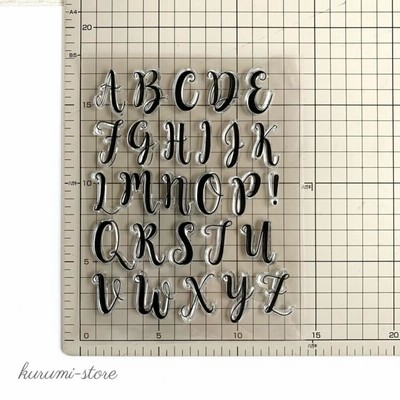 A4
B5
A B C D E
15
F G H I J K
L M N O P !
10
Q R S T U
5
V W X Y Z
0 5 10 15 20
kurumi-store